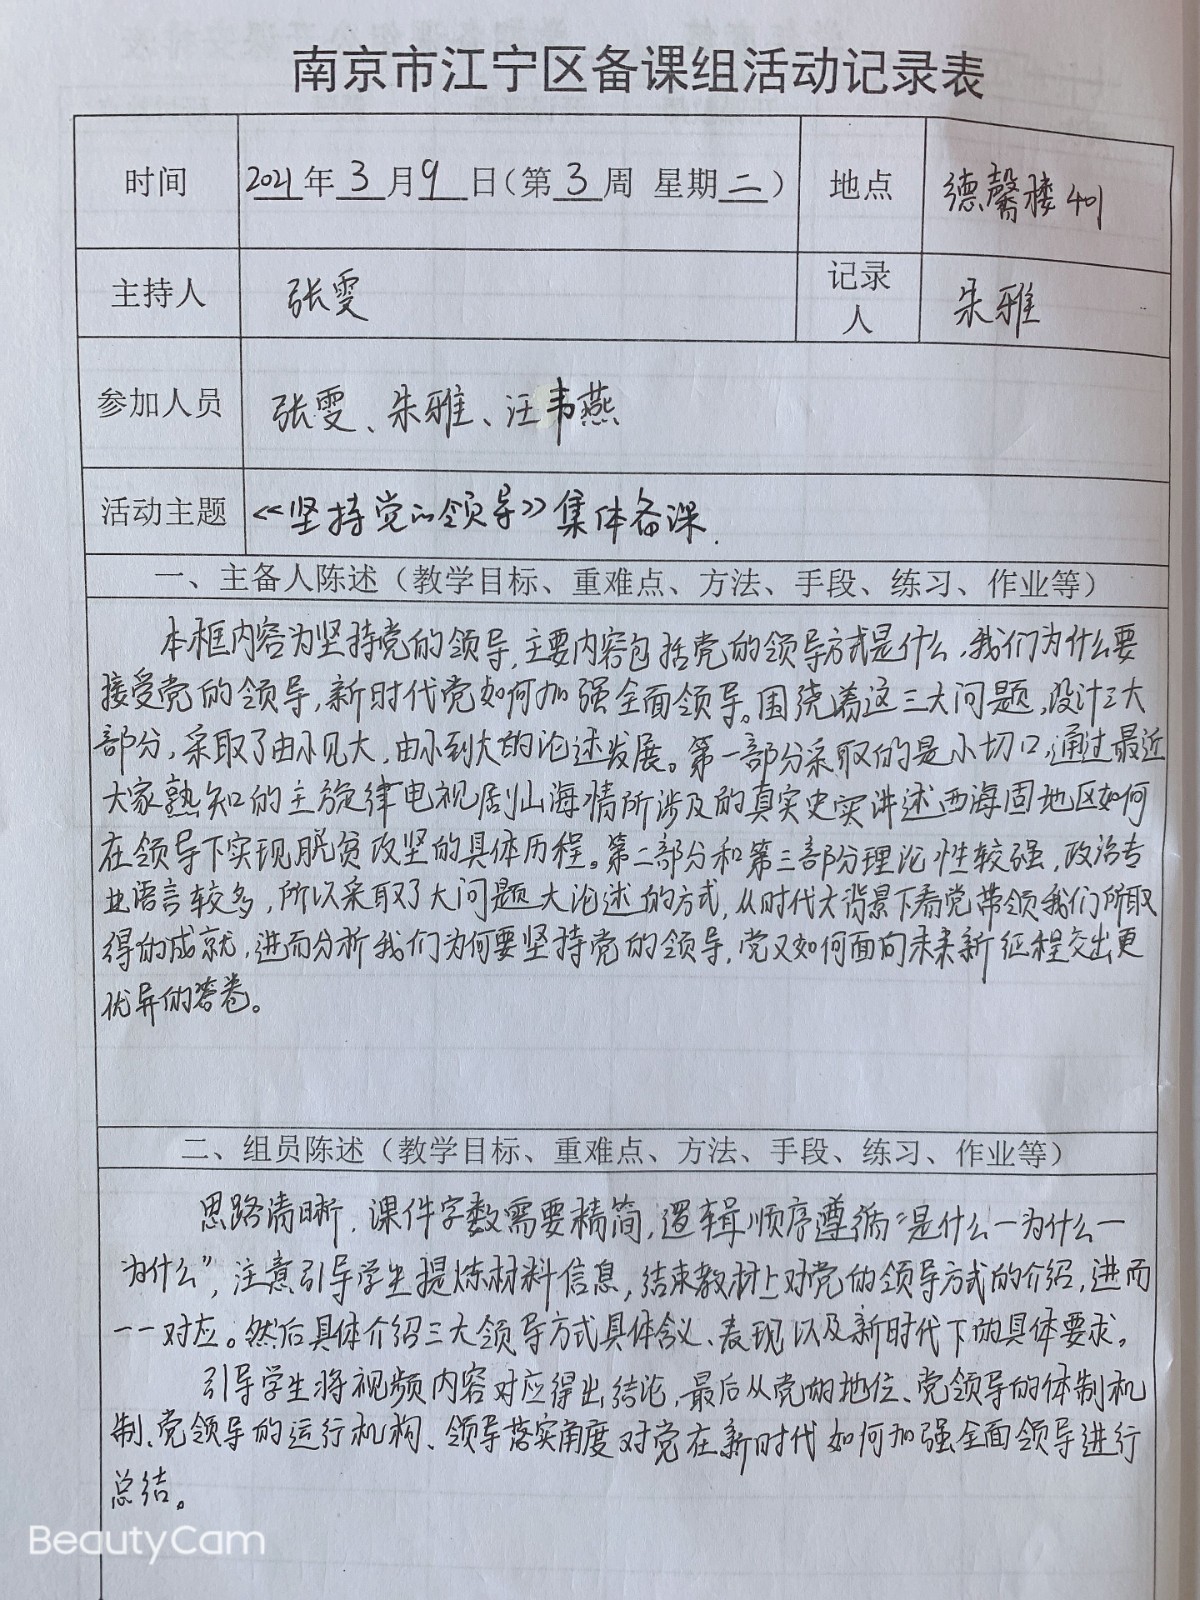 南京市江宁区备课组活动记录表
时间 2021年3月9日(第3周 星期二) 地点 德馨楼401
主持人 张雯 记录人 朱雅
参加人员 张雯、朱雅、汪韦燕
活动主题 《坚持党的领导》集体备课.
一、主备人陈述（教学目标、重难点、方法、手段、练习、作业等）
本框内容为坚持党的领导,主要内容包括党的领导方式是什么,我们为什么要
接受党的领导,新时代党如何加强全面领导。围绕着这三大问题,设计三大
部分,采取了由小见大,由小到大的论述发展。第一部分采取的是小切口,通过最近
大家熟知的主旋律电视剧山海情所涉及的真实史实讲述西海固地区如何
在领导下实现脱贫攻坚的具体历程。第二部分和第三部分理论性较强,政治专
业语言较多,所以采取了大问题大论述的方式,从时代大背景下看党带领我们所取
得的成就,进而分析我们为何要坚持党的领导,党又如何面向未来新征程交出更
优异的答卷。
二、组员陈述（教学目标、重难点、方法、手段、练习、作业等）
思路清晰,课件字数需要精简,逻辑顺序遵循"是什么—为什么—
为什么",注意引导学生提炼材料信息,结束教材上对党的领导方式的介绍,进而
一一对应。然后具体介绍三大领导方式具体含义、表现以及新时代下的具体要求。
引导学生将视频内容对应得出结论,最后从党的地位、党领导的体制机
制、党领导的运行机构、领导落实角度对党在新时代如何加强全面领导进行
总结。
BeautyCam